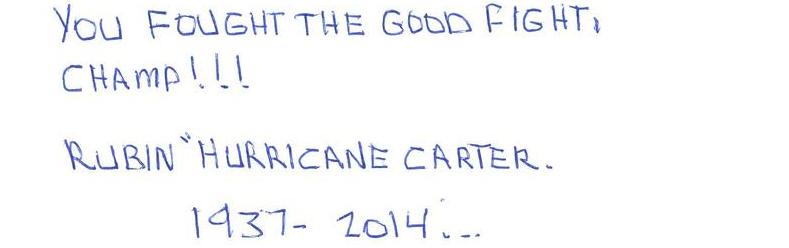 YOU FOUGHT THE GOOD FIGHT,
CHAMP!!!
RUBIN "HURRICANE CARTER.
1937- 2014...